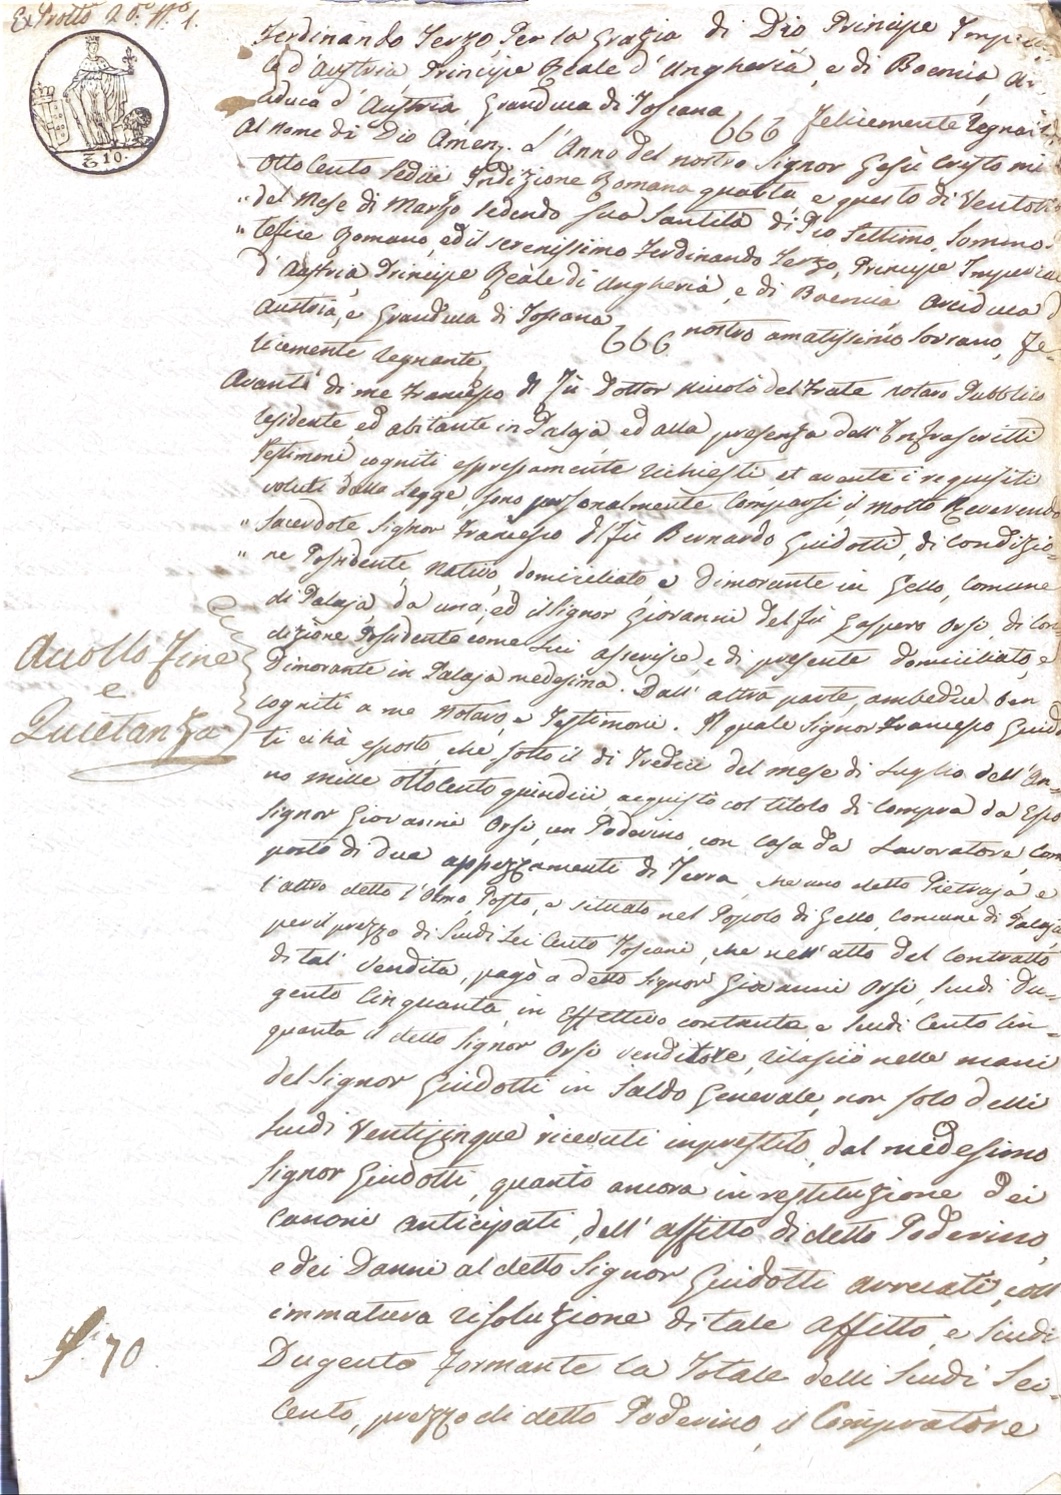 Ex Protto 20.° N.° 1.
Ferdinando Terzo Per la Grazia di Dio Principe Imperia
le d'Austria, Principe Reale d'Ungheria, e di Boemia, Ar-
ciduca d'Austria Granduca di Toscana felicemente Regnante
10.
Al nome di Dio Amen. L'Anno del nostro Signor Gesù Cristo mi
Ottocento Sedici Indizione Romana quarta, e questo dì Ventotto
del Mese di Marzo, sedendo Sua Santità di Pio Settimo, Sommo
tefice Romano, ed il serenissimo Ferdinando Terzo, Principe Imperiale
d'Austria, Principe Reale di Ungheria, e di Boemia Arciduca d
Austria, e Granduca di Toscana nostro amatissimo Sovrano, fe-
licemente Regnante,
Avanti di me Francesco del fù Dottor Niccolò del Frate notaro Pubblico
residente, ed abitante in Palaja, ed alla presenza dell'Infrascritti
Testimoni cogniti espressamente richiesti, et aventi i requisiti
voluti dalla Legge, sono personalmente Comparsi il Molto Reverendo
Sacerdote Signor Francesco del fù Bernardo Guidotti, di Condizio-
ne Possidente, nativo, domiciliato e dimorante in Gello, Comune
di Palaja da una, ed il Signor Giovanni del fù Gaspero Orsi, di Con
dizione Possidente come Lui asserisce, e di presente domiciliato, e
Dimorante in Palaja medesima. Dall'altra parte, ambedue ben
cogniti a me Notaro, e Testimoni. Il quale Signor Francesco Guido
ti ci hà esposto, che sotto il dì Tredici del mese di Luglio dell'An-
no mille ottocento quindici, acquistò col titolo di Compra da Esso
Signor Giovanni Orsi, un Poderino, con Casa da Lavoratore, Com
posto di due appezzamenti di Terra, che uno detto Pietraja, e
l'altro detto l'Olmo, Posto, e situato nel Popolo di Gello, Comune di Palaja
per il prezzo di Scudi Sei Cento Toscani, che nell'atto del Contratto
di tal' Vendita, pagò a detto Signor Giovanni Orsi, Scudi Du-
gento Cinquanta, in Effettivo contante, e Scudi Cento Cin-
quanta il detto Signor Orsi venditore, rilasciò nelle mani
del Signor Guidotti in Saldo Generale, non solo delli
Scudi Venticinque ricevuti in prestito, dal medesimo
Signor Guidotti, quanto ancora in restituzione dei
Canoni anticipati, dell'affitto di detto Poderino,
e dei Danni al detto Signor Guidotti arrecati, coll
immatura risoluzione di tale Affitto, e Scudi
Dugento formante la Totale delli Scudi Sei
Cento, prezzo di detto Poderino, il Compratore
Accollo Fine
e
Quietanza
70